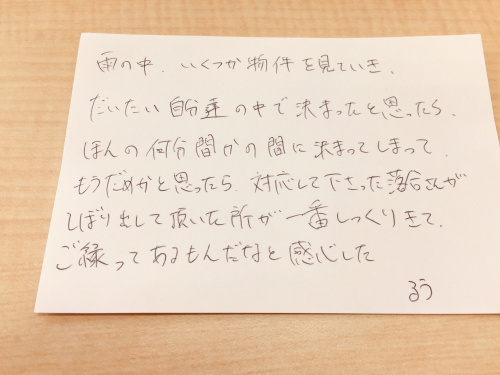 雨の中、いくつか物件を見ていき、
だいたい自分達の中で決まったと思ったら、
ほんの何分間かの間に決まってしまって、
もうだめかと思ったら、対応して下さった落合さんが
しぼり出して頂いた所が一番しっくりきて、
ご縁ってあるもんだなと感心した
るう